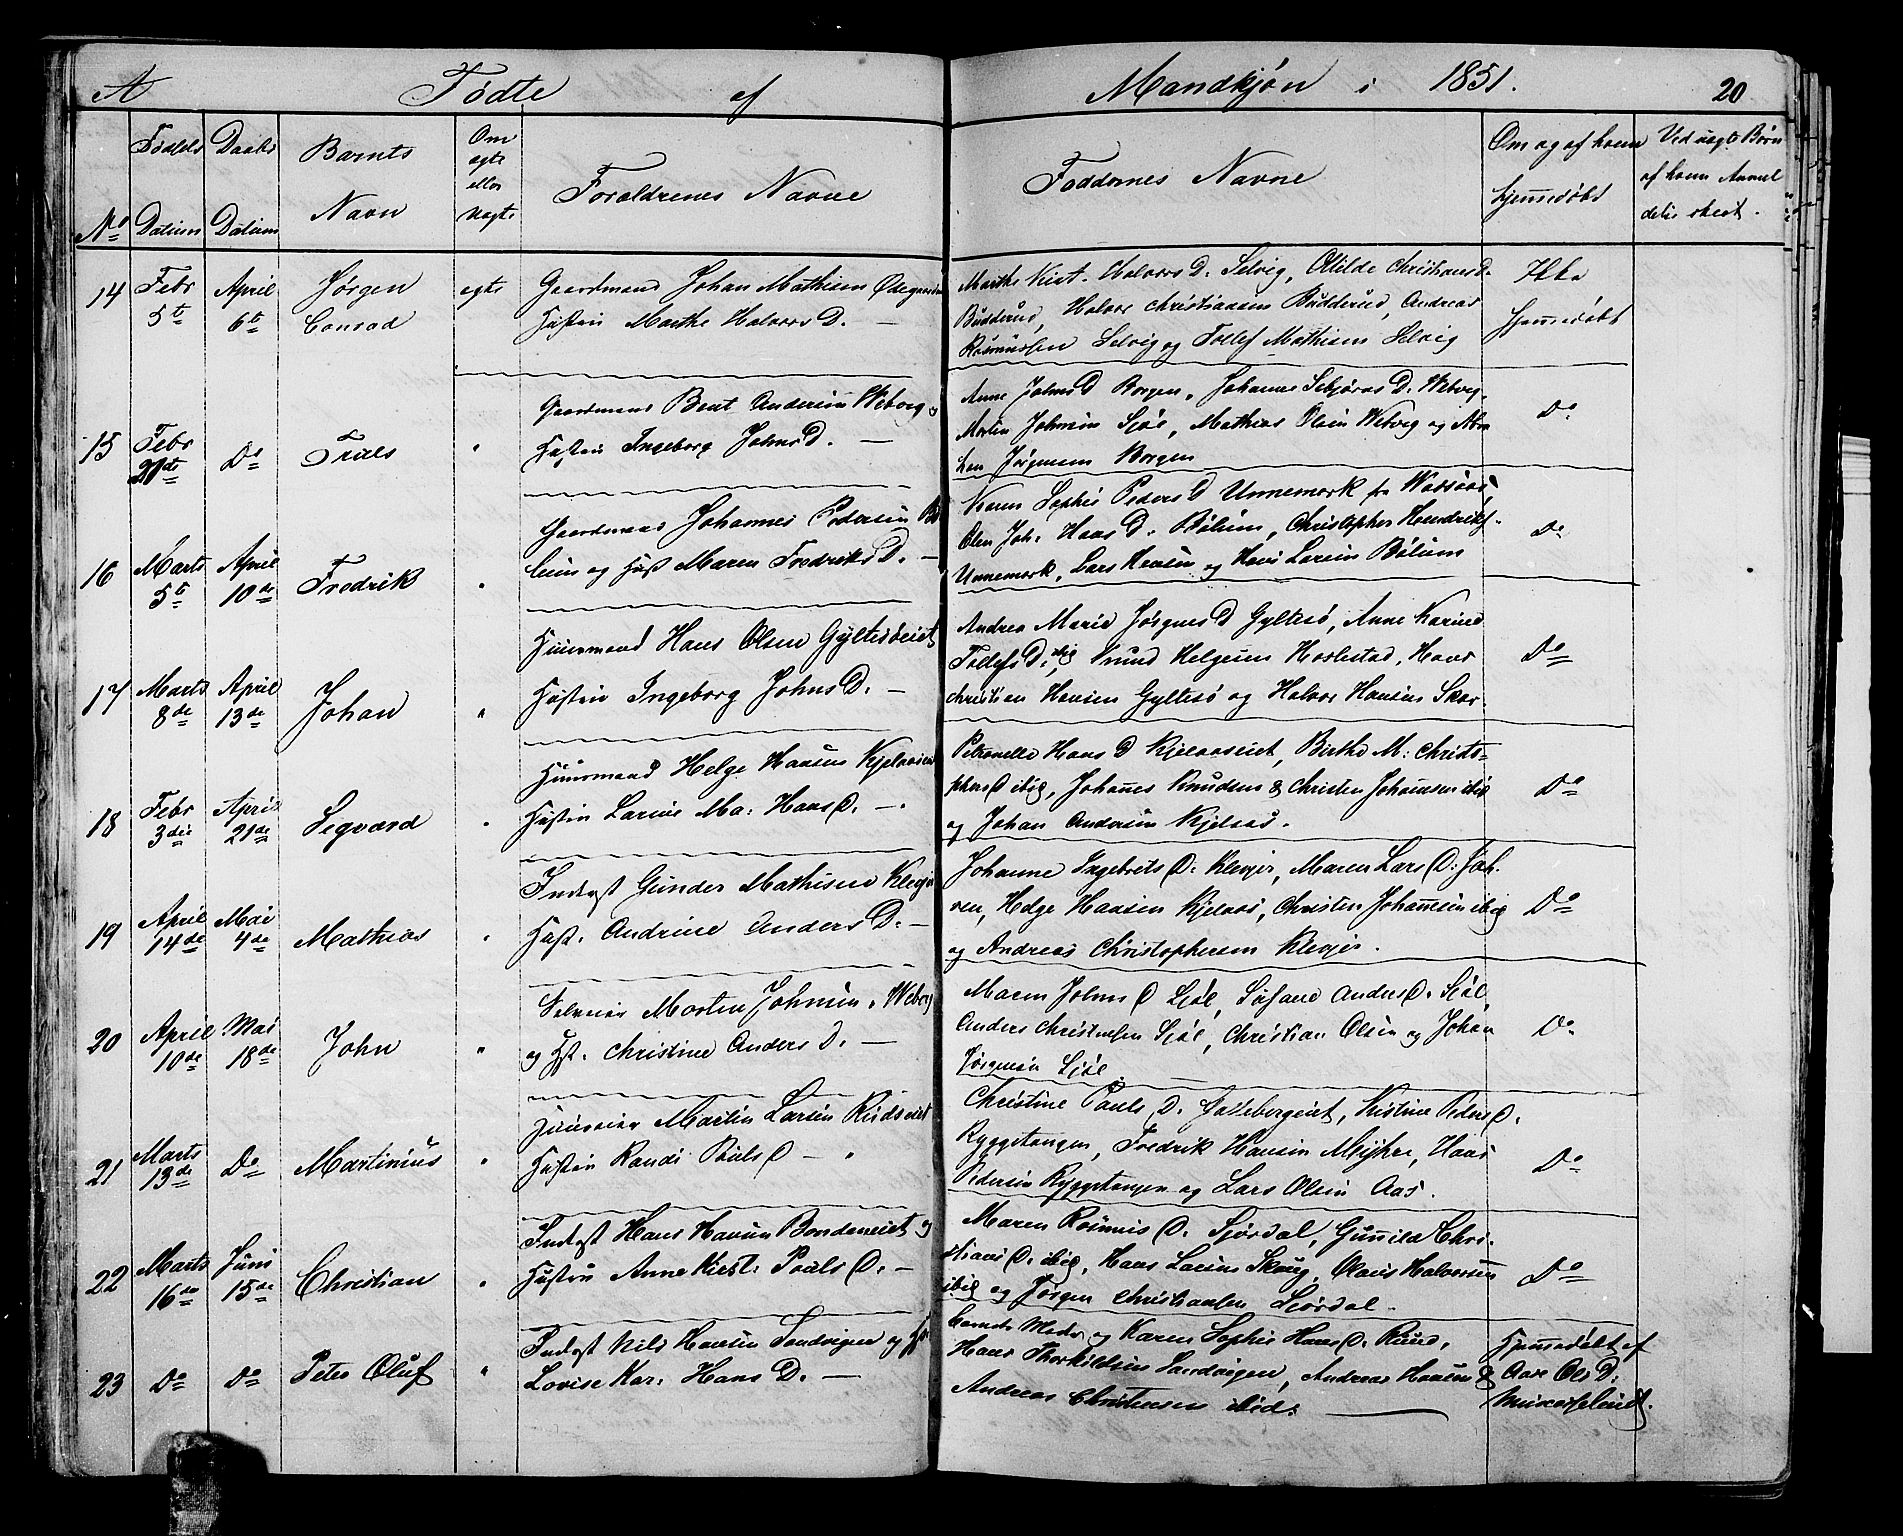 A Fødte af Mandkjøn i 1851. 20
No Fødsels Datum Daabs Datum Barnets Navn Om ægte eller uægte Forældrenes Navne Faddernes Navne Om og af hvem hjemmedøbt Ved uægte Børn af hvem Anmeldelse skeet.
14 Febr 5te April 6te Jørgen Conrad ægte Gaardmand Johan Mathisen
Hustru Marthe Halvors D. —
Marthe Kirst. Halvors D. Selvig, Otilde Christians D.
Budderud, Halvor Christiansen Budderud, Andreas
Rasmussen Selvig og Tollef Mathisen Selvig
Ikke
hjemmedøbt
15 Febr Do Truls " Gaardmand Bent Andersen Webverg
Hustru Ingeborg Johns D. —
Anne Johns D Borgen, Johanne D. Webverg,
Morten Johnsen Sjøl, Mathias Olsen Webverg og
Jørgensen Borgen
Do
16 Marts 5te April 10de Fredrik " Gaardmand Johannes Pedersen
og Hust Maren Fredriks D. —
Karen Sophie Peders D Unnemark fra
Olea Joh. Hans D. Bølum, Christopher Hendriks.
Unnemark, Lars Hansen og Hans Larsen Bølum
Do
17 Marts 8de April 13de Johan " Huusmand Hans Olsen Gyltesøeiet
Hustru Ingeborg Johns D. —
Andrea Marie Jørgens D Gyltesø, Anne Karine
Tollefs D. ibig, Knud Helgesen Haslestad, Hans
Christian Hansen Gyltesø og Halvor Hansen
Do
18 Febr 3die April 21de Segvard " Huusmand Helge Hansen
Hustru Larine Ma: Hans D. —
Petronelle Hans D Kjelaaseiet, Birthe M: Christo-
phers D ibig, Johannes Knudsen & Christen Johannsen ibig
og Johan Andersen Kjelaas.
Do
19 April 14de Mai 4de Mathias " Inderst Gunder Mathisen
Hust. Andrine Anders D. —
Johanne Ingebrets D. Klevjer, Maren Lars D.
Helge Hansen Kjelaas, Christen Johannsen ibig
og Andreas Christophersen Klevjer.
Do
20 April 10de Mai 18de John " Selveier Morten Johnsen
og Hst. Christine Anders D. —
Maren Johns D Sjøl, Anders D. Sjøl,
Anders Christensen Sjøl, Christian Olsen og Johan
Jørgensen Sjøl.
Do
21 Marts 13de Do Martinius " Martin Larsen
Hustru Randi Pauls D —
Christine Pauls D. Kistine Peders D.
Ryggetangen, Fredrik Hansen Hans
Pedersen Ryggetangen og Lars Olsen Aas.
Do
22 Marts 16de Juni 15de Christian " Inderst Hans Hansen og
Hustru Anne Kirst. Pauls D. —
Maren Rasmus D. Sjørdal, Gunild Chri-
stians D. ibig, Hans Larsen Skoug, Olaus Halvorsen
ibig og Jørgen Christiansen Sjørdal.
Do
23 Do Do Peter Oluf " Inderst Nils Hansen Sandvigen og
Lovise Kar. Hans D. —
Barnets Moder og Karen Sophie Hans D. Ruud,
Hans Thorkildsen Sandvigen, Andreas Hansen &
Andreas Christensen ibid.
Hjemmedøbt af
Ols D.